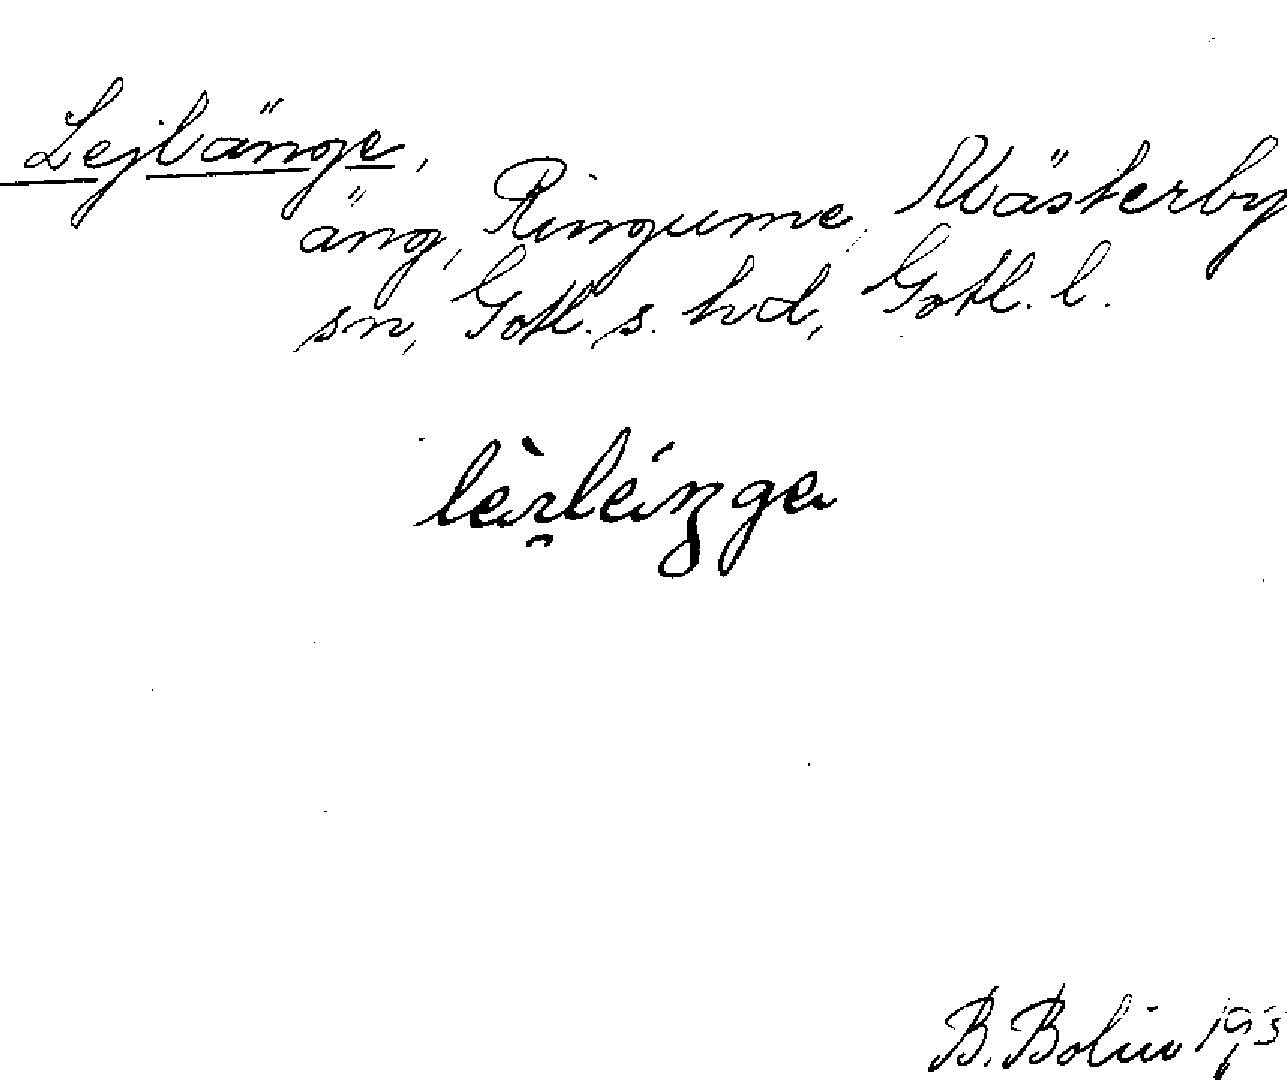 Lejlänge,
äng, Ringume, Mästerby
sn, Gotl. s. hd, Gotl. l.
B. Bolin 193